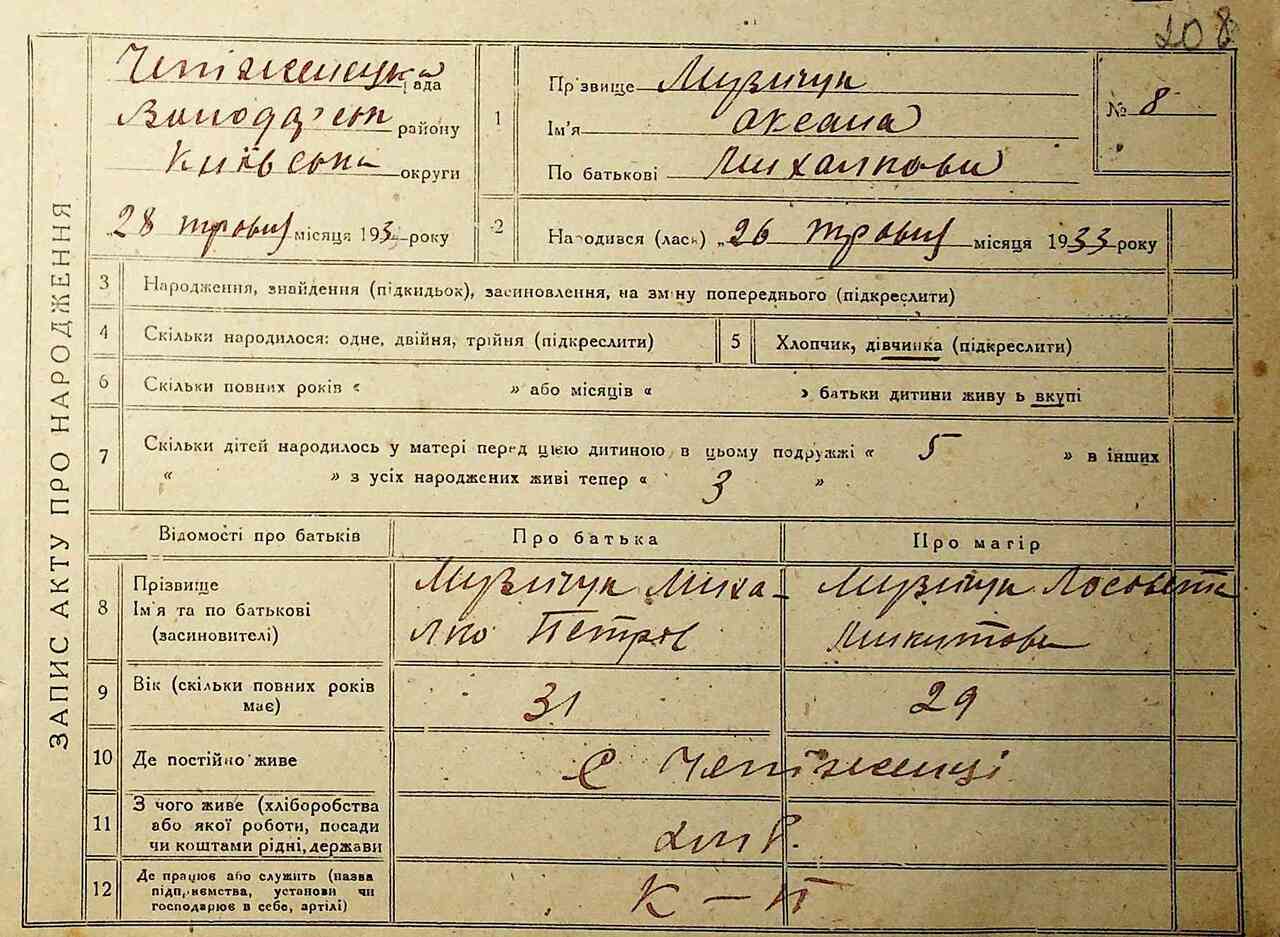 208
ЗАПИС АКТУ ПРО НАРОДЖЕННЯ
Чепіженецка рада
району
Київська округи
28 травня місяця 193 року
1
Прізвище Музичук
Ім'я Оксана
По батькові Михайлови
№ 8
2
Народився (лась) „26 травня місяця 1933 року
3 Народження, знайдення (підкидьок), засиновлення, на зміну попереднього (підкреслити)
4 Скільки народилося: одне, двійня, трійня (підкреслити)
5 Хлопчик, дівчинка (підкреслити)
6 Скільки повних років « » або місяців « » батьки дитини живуть вкупі
7 Скільки дітей народилось у матері перед цією дитиною в цьому подружжі « 5 » в інших
« » з усіх народжених живі тепер « 3 »
Відомості про батьків Про батька Про матір
8 Прізвище
Ім'я та по батькові
(засиновителі)
Музичук Миха-
йло Петров
Музичук
Микитова
9 Вік (скільки повних років
має)
31 29
10 Де постійно живе
с Чепіженці
11 З чого живе (хліборобства
або якої роботи, посади
чи коштами рідні, держави
12 Де працює або служить (назва
підприємства, установи чи
господарює в себе, артілі)
К — п